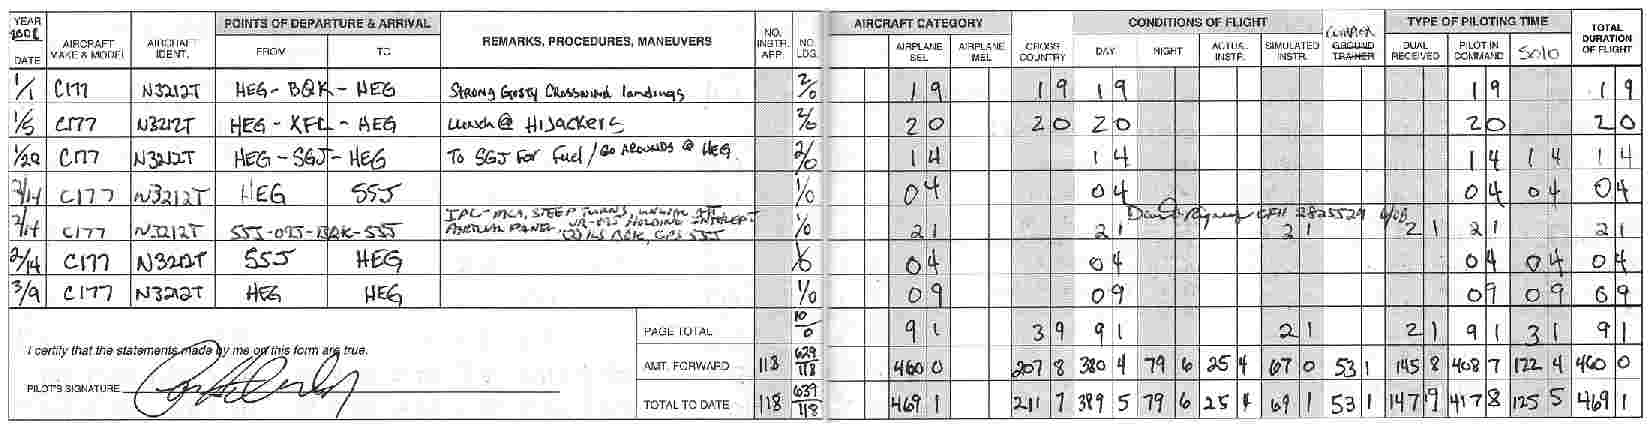 YEAR POINTS OF DEPARTURE & ARRIVAL NO. INSTR. APP. NO. LDG. AIRCRAFT CATEGORY CONDITIONS OF FLIGHT TYPE OF PILOTING TIME TOTAL DURATION OF FLIGHT
DATE AIRCRAFT MAKE & MODEL AIRCRAFT IDENT. FROM TO REMARKS, PROCEDURES, MANEUVERS AIRPLANE SEL AIRPLANE MEL CROSS COUNTRY DAY NIGHT ACTUAL INSTR. SIMULATED INSTR. GROUND TRAINER DUAL RECEIVED PILOT IN COMMAND SOLO
1/1 C177 N3212T HEG - BQK - HEG Strong Gusty Crosswind landings 2/0 1 9 1 9 1 9 1 9 1 9
1/5 C177 N3212T HEG - XFL - HEG Lunch @ HiJackers 2/0 2 0 2 0 2 0 2 0 2 0
1/20 C177 N3212T HEG - SGJ - HEG To SGJ For Fuel / Go Arounds @ HEG. 2/0 1 4 1 4 1 4 1 4 1 4
2/14 C177 N3212T HEG SSJ 1/0 0 4 0 4 0 4 0 4 0 4
IPC - MCA, STEEP TURNS,
2/14 C177 N3212T SSJ - 09J - BQK - SSJ PARTIAL PANEL, HOLDING INTERCEPT ILS BQK, GPS SSJ 1/0 2 1 2 1 CFII 2825529 2 1 2 1 2 1 2 1
2/14 C177 N3212T SSJ HEG 1/0 0 4 0 4 0 4 0 4 0 4
3/9 C177 N3212T HEG HEG 1/0 0 9 0 9 0 9 0 9 0 9
PAGE TOTAL 10/0 9 1 3 9 9 1 2 1 2 1 9 1 3 1 9 1
I certify that the statements made by me on this form are true. AMT. FORWARD 113 629/118 460 0 207 8 380 4 79 6 25 4 67 0 53 1 145 8 408 7 122 4 460 0
PILOT'S SIGNATURE TOTAL TO DATE 118 639/118 469 1 211 7 389 5 79 6 25 4 69 1 53 1 147 9 417 8 125 5 469 1